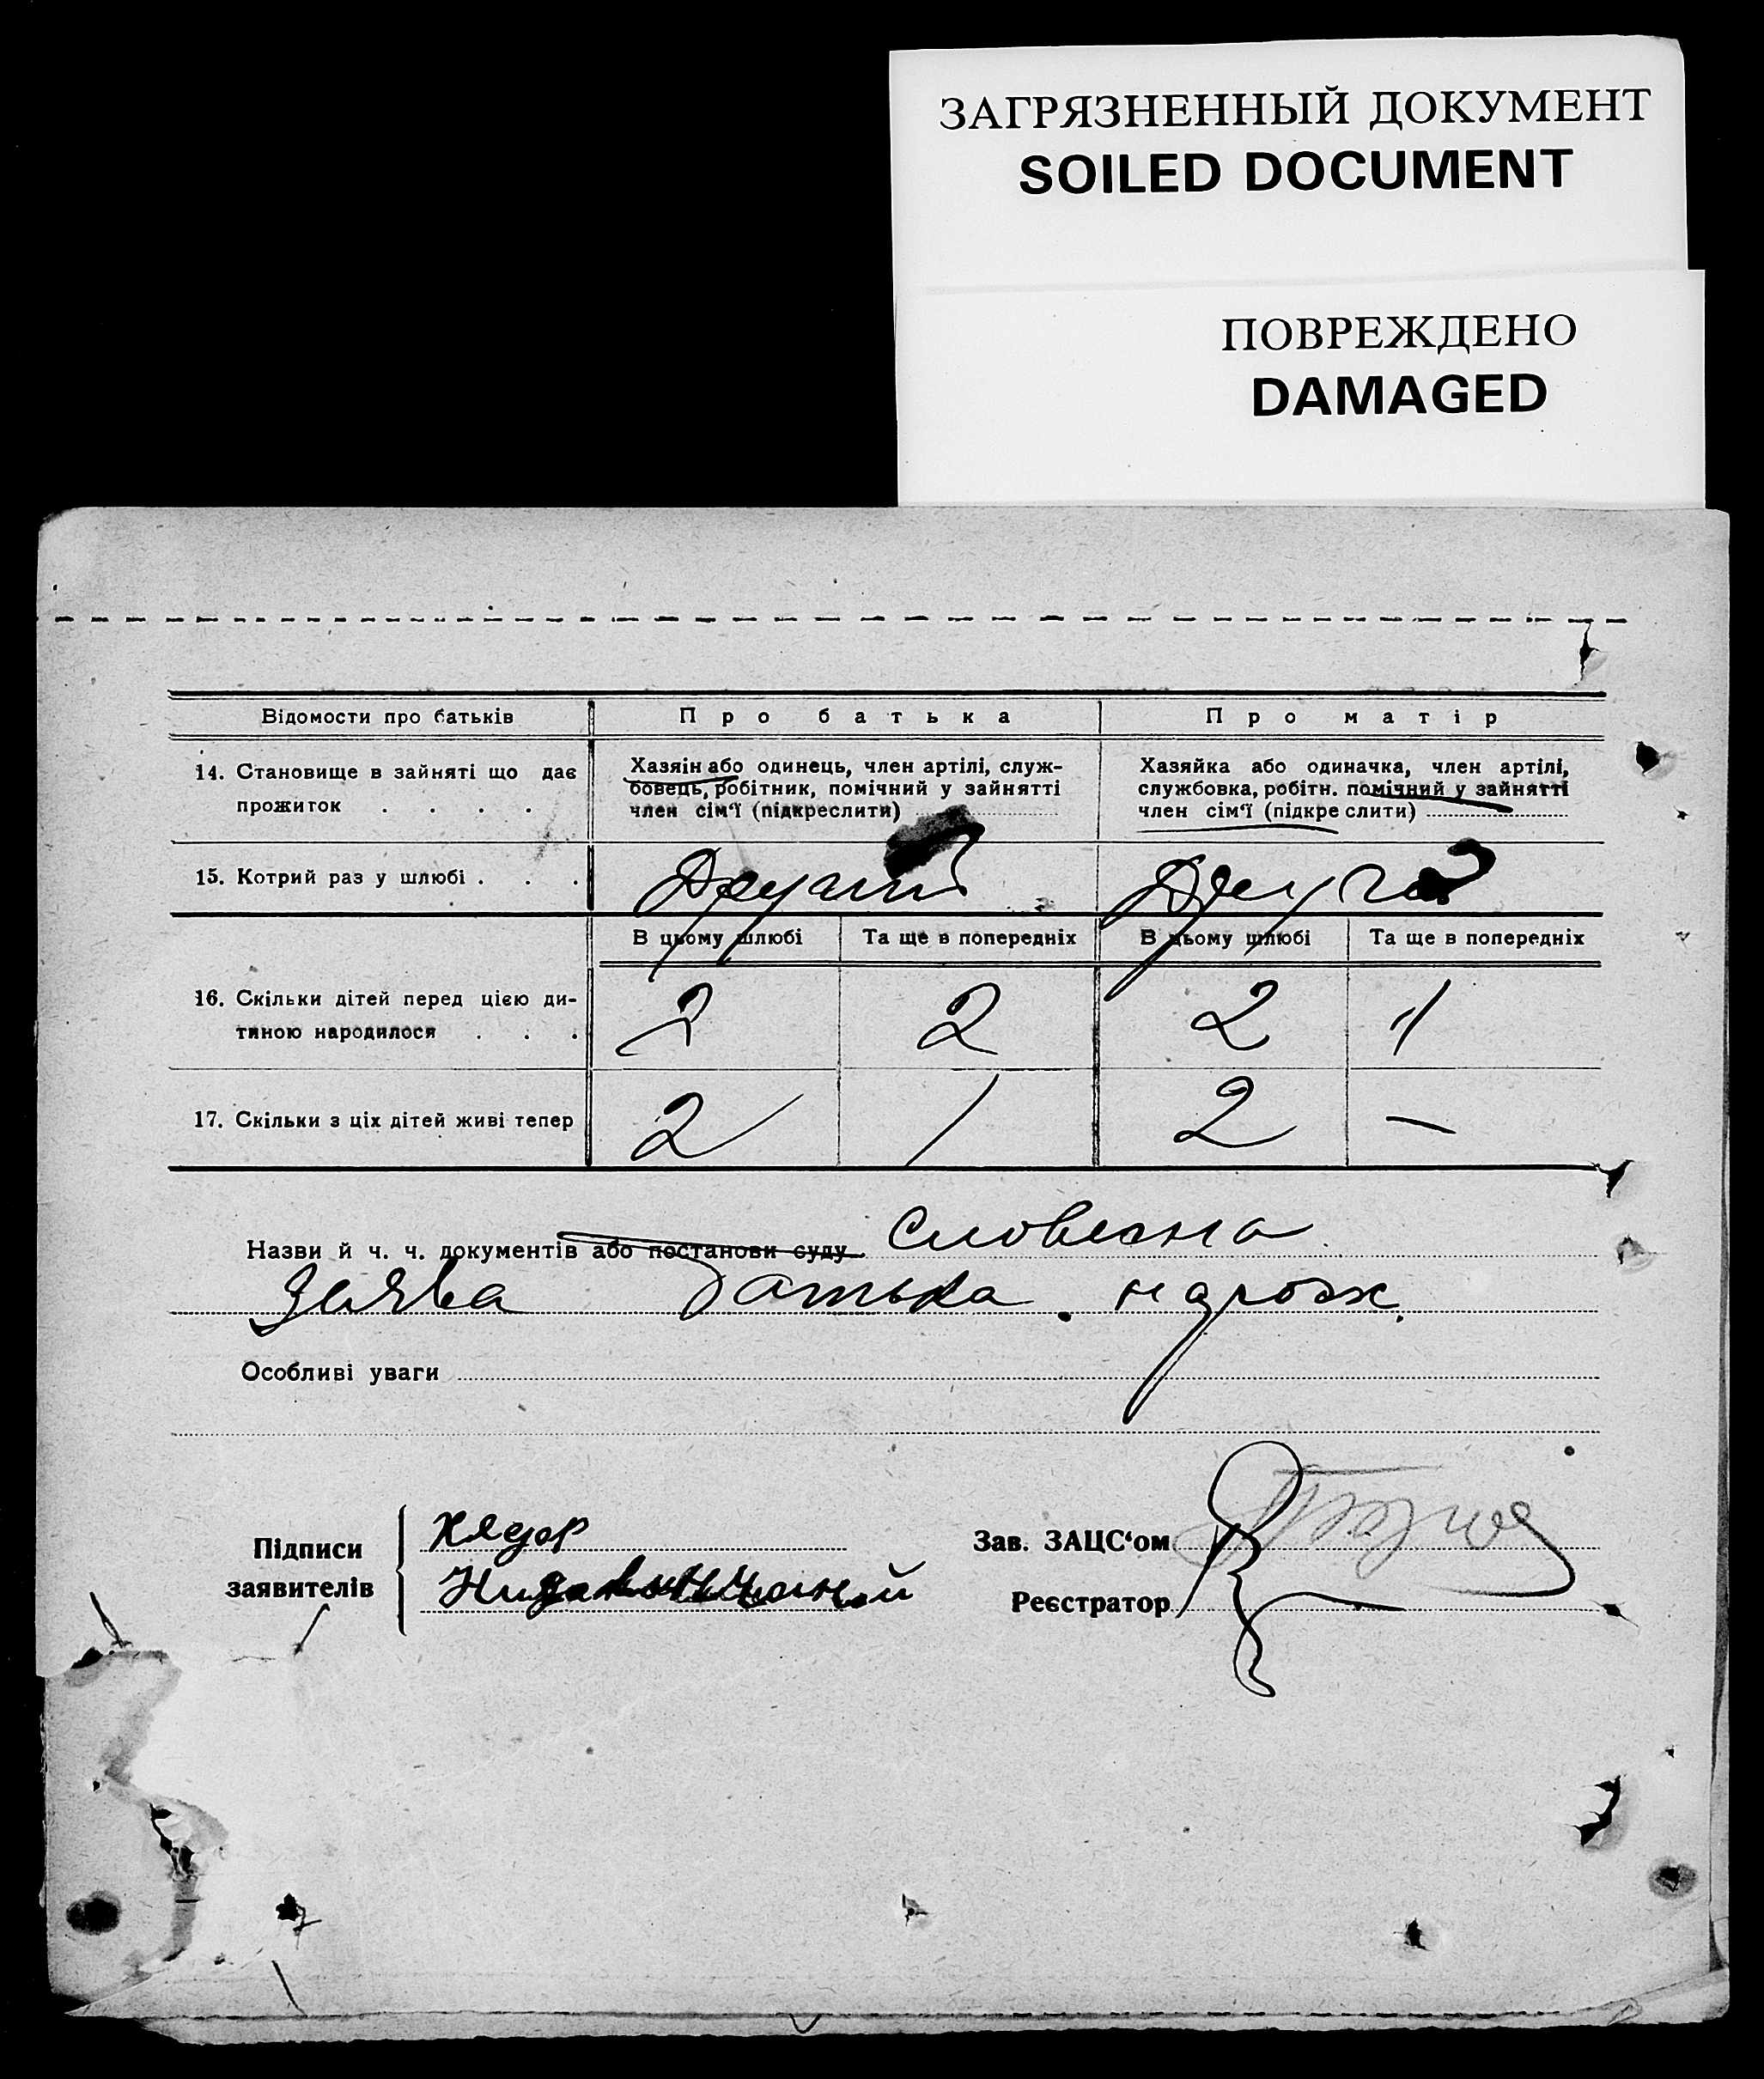 ЗАГРЯЗНЕННЫЙ ДОКУМЕНТ
SOILED DOCUMENT
ПОВРЕЖДЕНО
DAMAGED
Відомости про батьків
Про батька
Про матір
14. Становище в зайняті що дає
прожиток . . . .
Хазяін або одинець, член артілі, служ-
бовець, робітник, помічний у зайнятті
член сім'ї (підкреслити)
Хазяйка або одиначка, член артілі,
службовка, робітн. помічний у зайнятті
член сім'ї (підкреслити)
15. Котрий раз у шлюбі . . .
Другий
Друга
В цьому шлюбі
Та ще в попередніх
В цьому шлюбі
Та ще в попередніх
16. Скільки дітей перед цією ди-
тиною народилося . . .
2
2
2
1
17. Скільки з ціх дітей живі тепер
2
1
2
—
Назви й ч. ч. документів або постанови суду Словесна
Заява батька
Особливі уваги
Підписи
заявителів
Зав. ЗАЦС'ом
Реєстратор